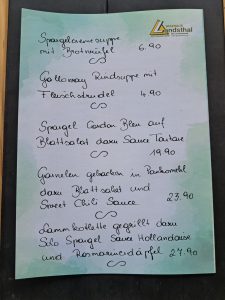 Landsthal
Spargelcremesuppe
mit Brotwürfel 6.90
Galloway Rindsuppe mit
Fleischstrudel 4.90
Spargel Cordon Bleu auf
Blattsalat dazu Sauce Tartare
19.90
Garnelen gebacken in Pankomehl
dazu Blattsalat und
Sweet Chili Sauce 23.90
Lammkotlette gegrillt dazu
Solo Spargel Sauce Hollandaise
und Rosmarinerdäpfel 27.90